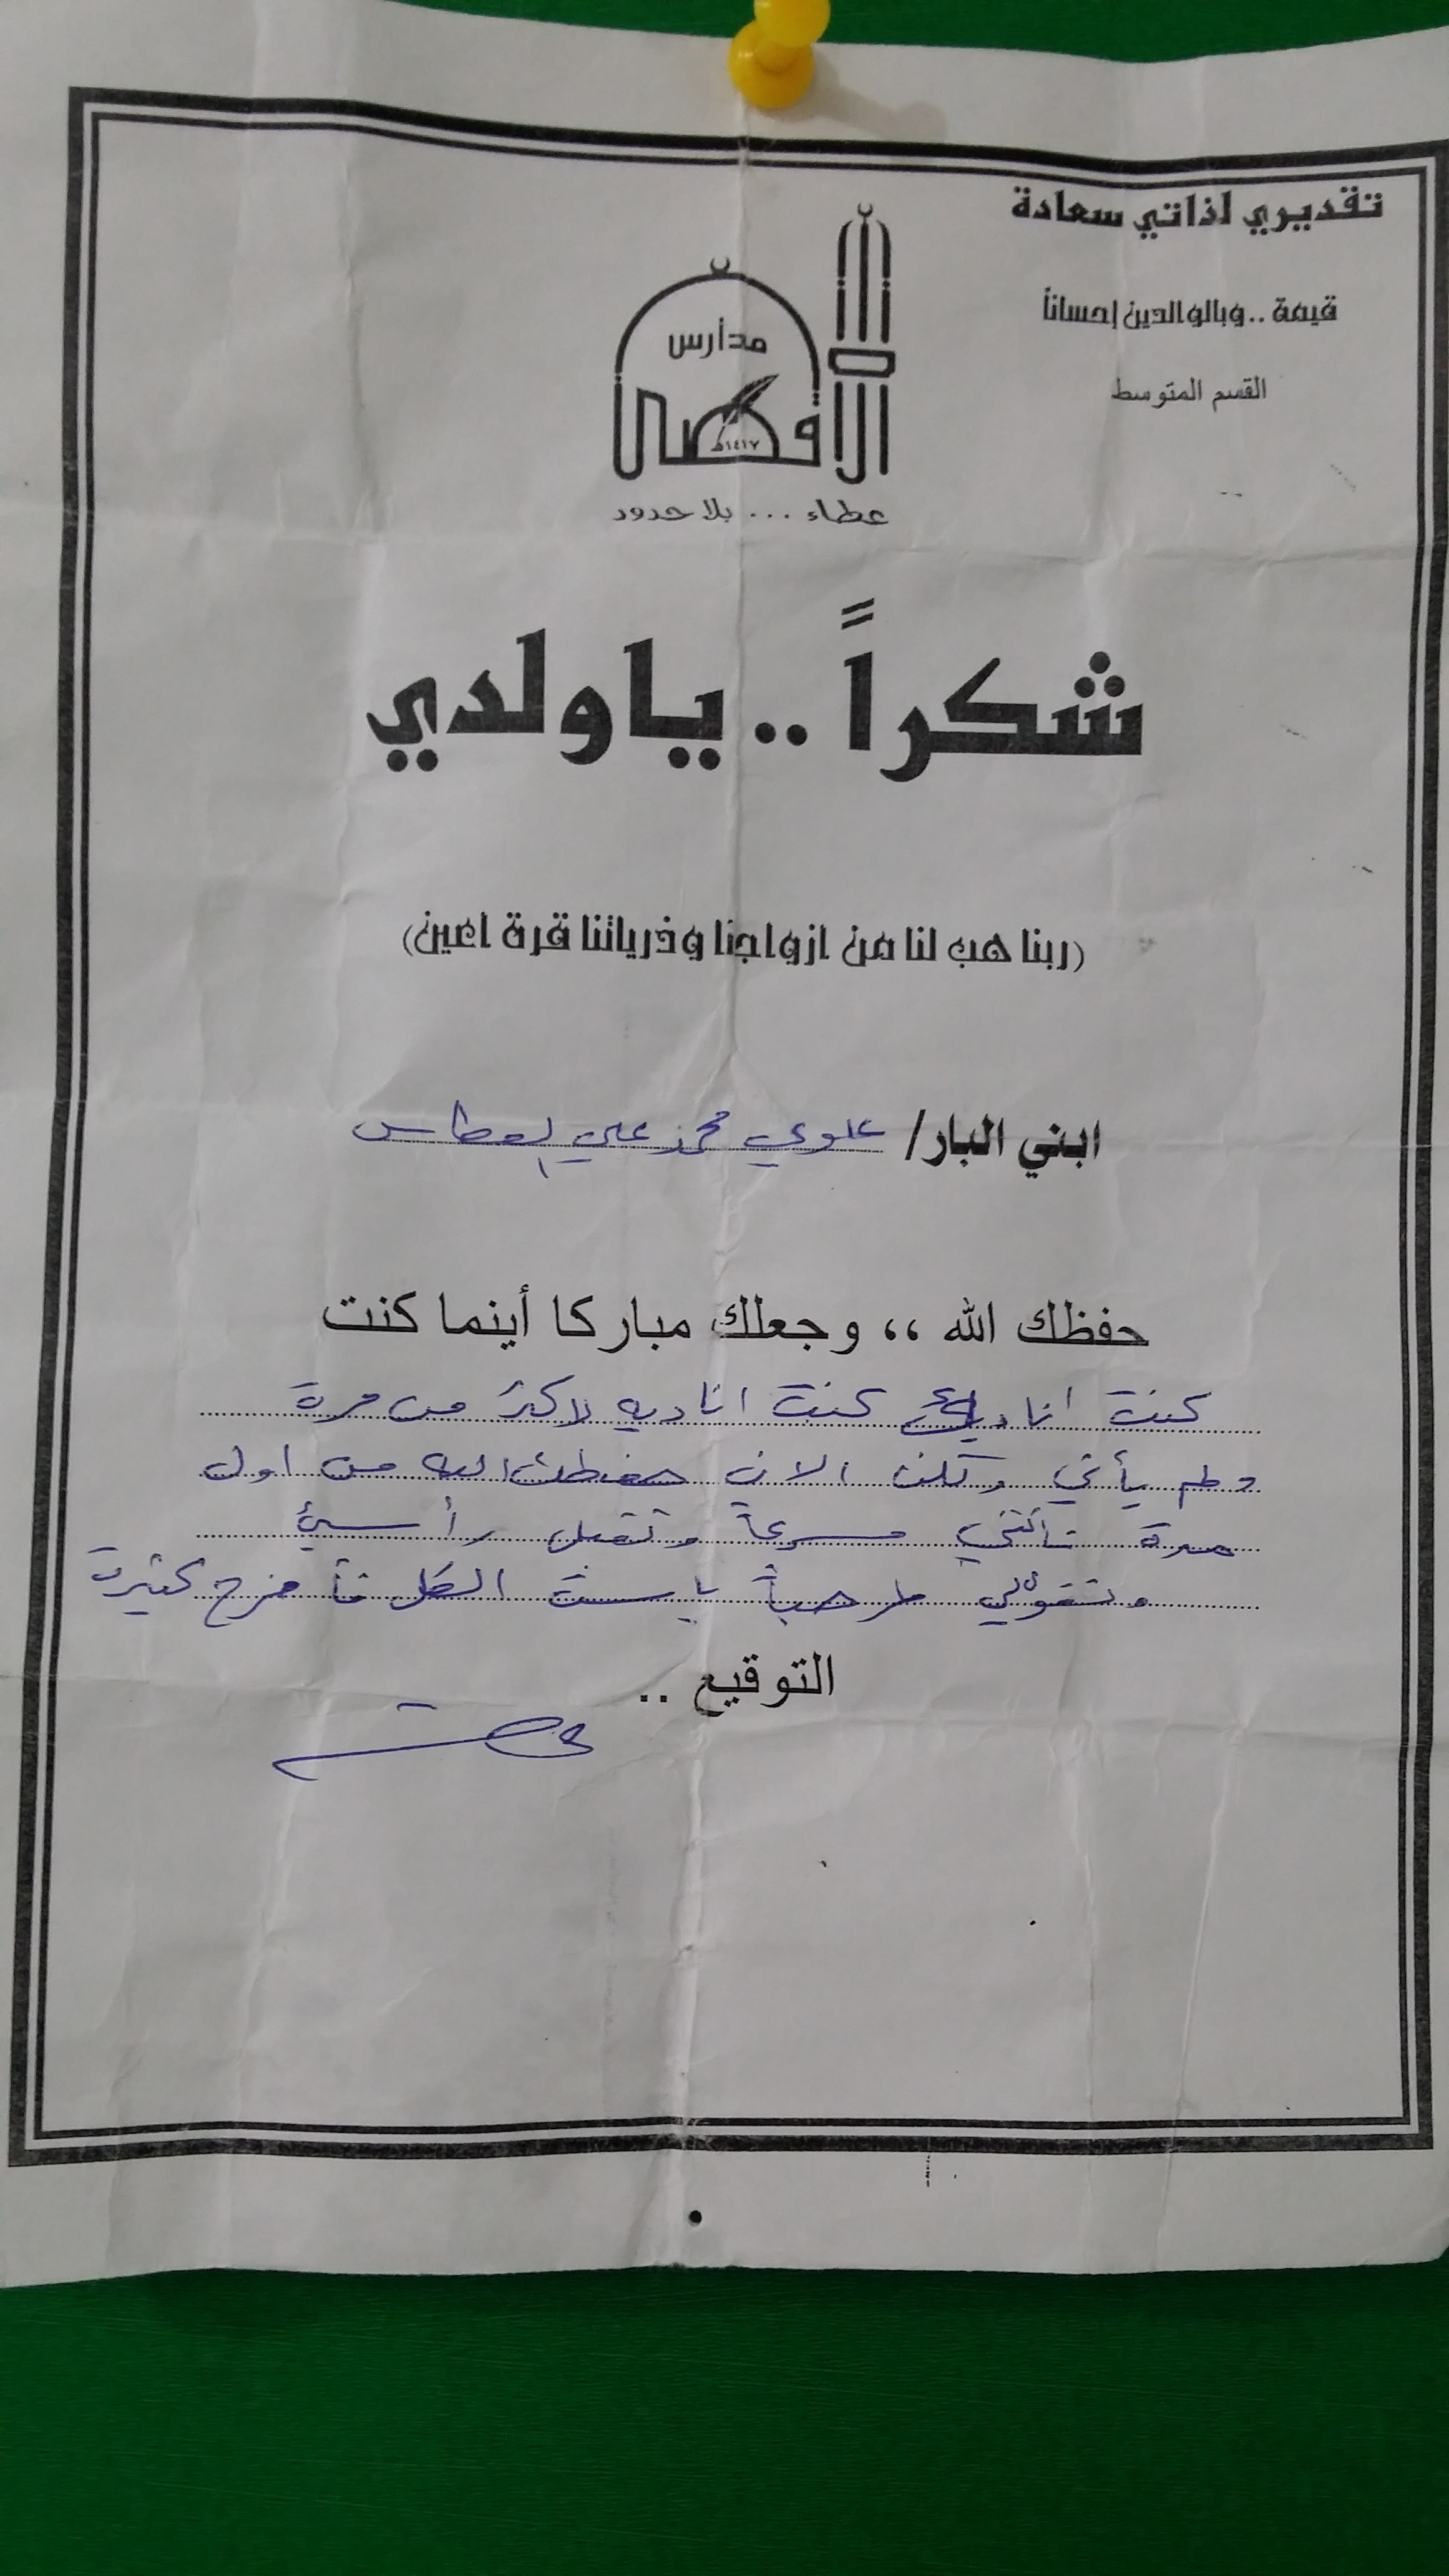 تقديري لذاتي سعادة
قيمة .. وبالوالدين إحساناً
القسم المتوسط
مدارس
الأقصى
١٤١٧هـ
عطاء ... بلا حدود
شكراً .. يا ولدي
(ربنا هب لنا من ازواجنا وذرياتنا قرة اعين)
ابني البار/ علوي محمد علي العطاس
حفظك الله ،، وجعلك مباركا أينما كنت
كنت اناديك كنت اناديه لاكثر من مرة
ولم يأتي ولكن الان حفظك الله من اول
مرة تأتي مسرعاً وتقبل رأسي
وتقولي مرحباً يا ست الكل فأفرح كثيرت
التوقيع ..